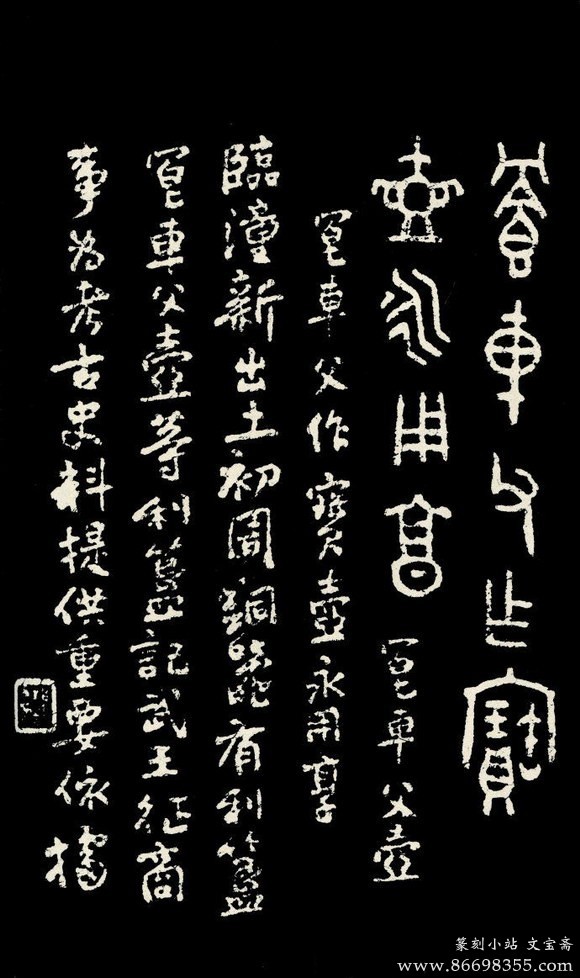 車父乍寶
壺永用享 車父壺
車父作寶壺永用享
臨潼新出土初周銅器有利簋
車父壺等利簋記武王征商
事为考古史料提供重要依據
篆刻小站 文宝斋
www.86698355.com